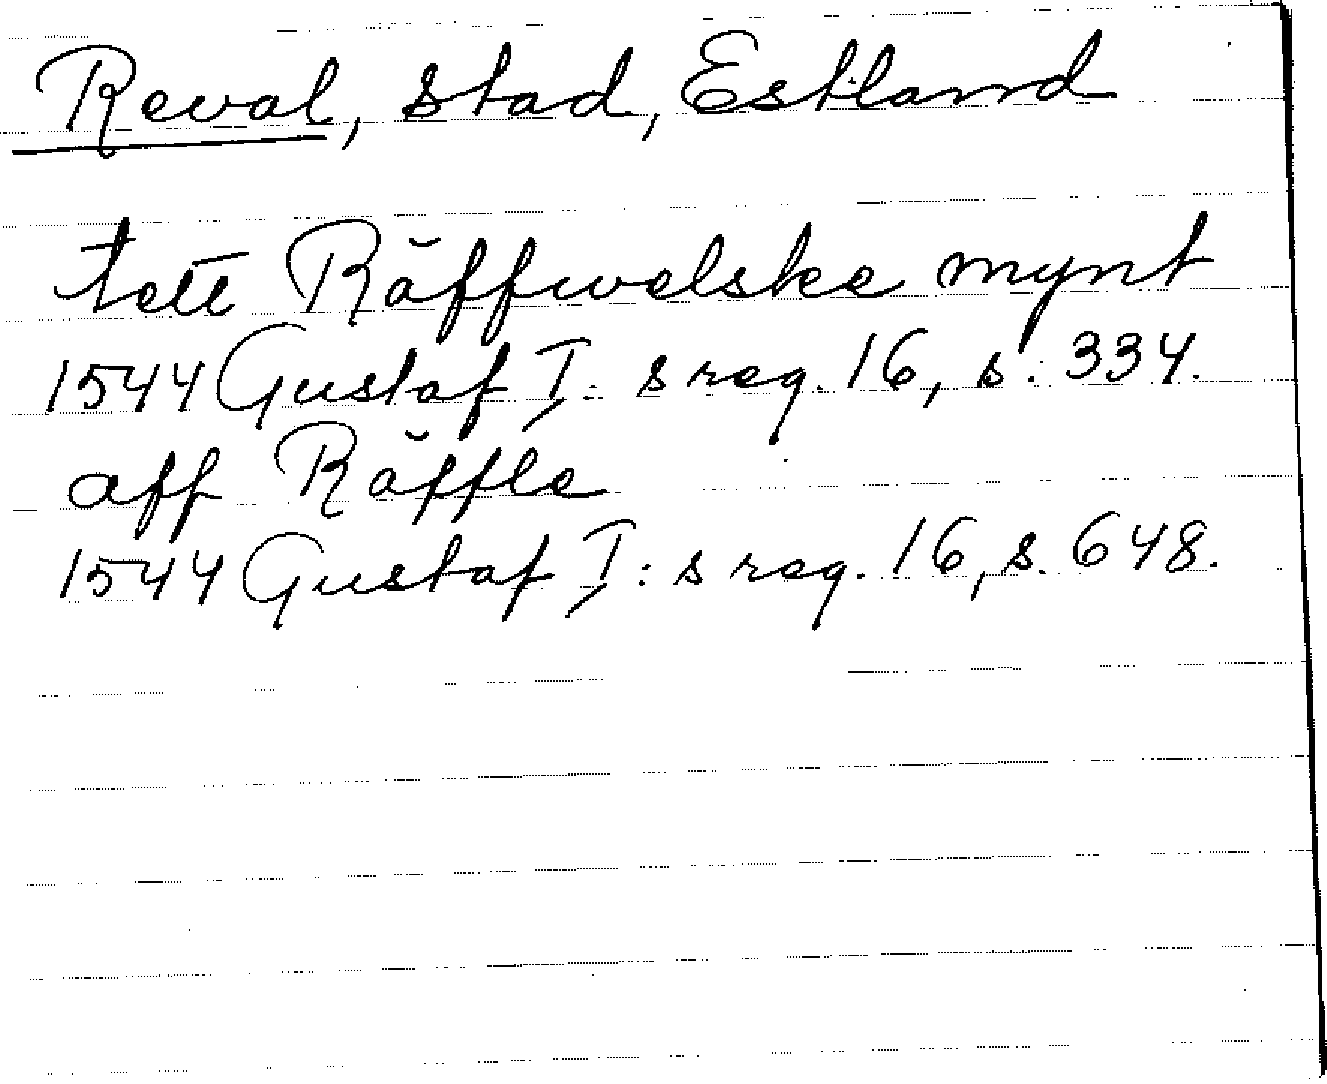 Reval, stad, Estland
tett Räffwelske mynt
1544 Gustaf I:s reg. 16, s. 334.
aff Räffle
1544 Gustaf I:s reg. 16, s. 648.